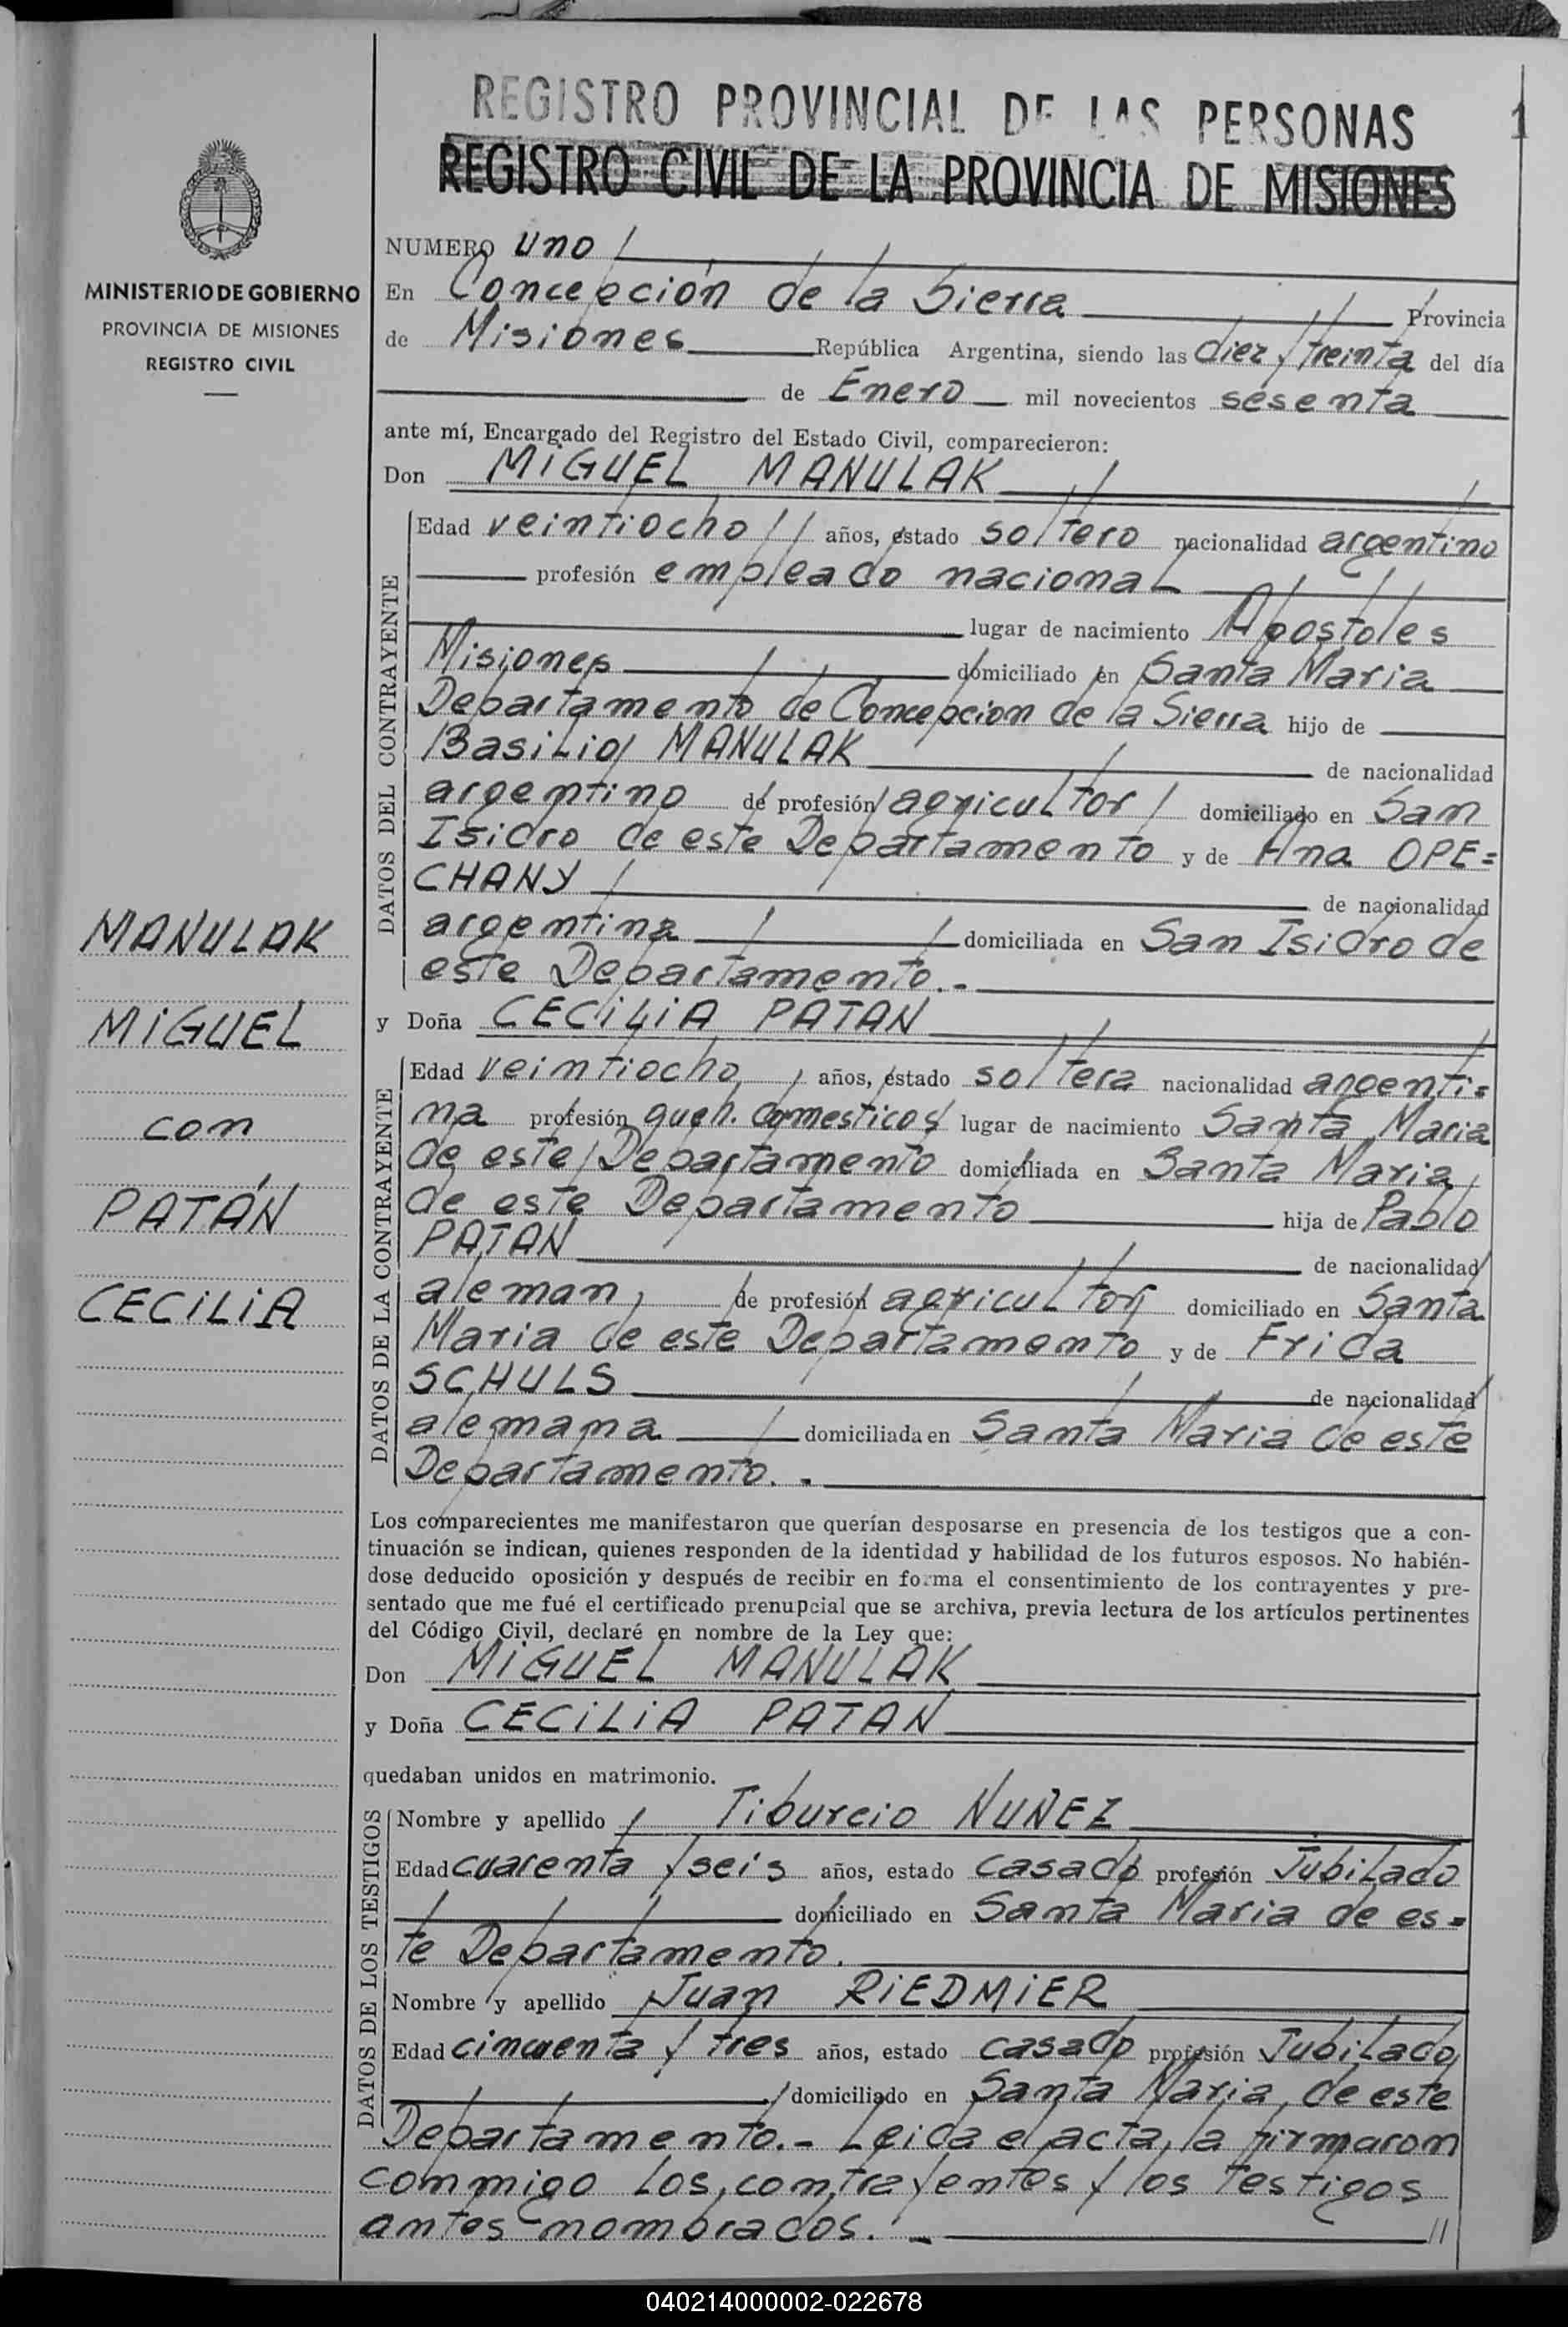 REGISTRO PROVINCIAL DE LAS PERSONAS
1
REGISTRO CIVIL DE LA PROVINCIA DE MISIONES
MINISTERIO DE GOBIERNO
PROVINCIA DE MISIONES
REGISTRO CIVIL
MANULAK
MIGUEL
con
PATÁN
CECILIA
NUMERO uno
En Concepción de la Sierra Provincia
de Misiones República Argentina, siendo las diez y treinta del día
de Enero mil novecientos sesenta
ante mí, Encargado del Registro del Estado Civil, comparecieron:
Don MIGUEL MANULAK
DATOS DEL CONTRAYENTE
Edad veintiocho años, estado soltero nacionalidad argentino
profesión empleado nacional
lugar de nacimiento Apostoles
Misiones domiciliado en Santa Maria
Departamento de Concepcion de la Sierra hijo de
Basilio MANULAK de nacionalidad
argentino de profesión agricultor domiciliado en San
Isidro de este Departamento y de Ana OPE=
CHANY de nacionalidad
argentina domiciliada en San Isidro de
este Departamento.-
y Doña CECILIA PATAN
DATOS DE LA CONTRAYENTE
Edad veintiocho años, estado soltera nacionalidad argenti=
na profesión queh. domesticos lugar de nacimiento Santa Maria
de este Departamento domiciliada en Santa Maria
de este Departamento hija de Pablo
PATAN de nacionalidad
aleman de profesión agricultor domiciliado en Santa
Maria de este Departamento y de Frida
SCHULS de nacionalidad
alemana domiciliada en Santa Maria de este
Departamento.-
Los comparecientes me manifestaron que querían desposarse en presencia de los testigos que a con-
tinuación se indican, quienes responden de la identidad y habilidad de los futuros esposos. No habién-
dose deducido oposición y después de recibir en forma el consentimiento de los contrayentes y pre-
sentado que me fué el certificado prenupcial que se archiva, previa lectura de los artículos pertinentes
del Código Civil, declaré en nombre de la Ley que:
Don MIGUEL MANULAK
y Doña CECILIA PATAN
quedaban unidos en matrimonio.
DATOS DE LOS TESTIGOS
Nombre y apellido Tiburcio NUNEZ
Edad cuarenta y seis años, estado casado profesión Jubilado
domiciliado en Santa Maria de es=
te Departamento.
Nombre y apellido Juan RIEDMIER
Edad cincuenta y tres años, estado casado profesión Jubilado
domiciliado en Santa Maria de este
Departamento.- Leida el acta, la firmaron
conmigo los contrayentes y los testigos
antes nombrados.- //
040214000002-022678